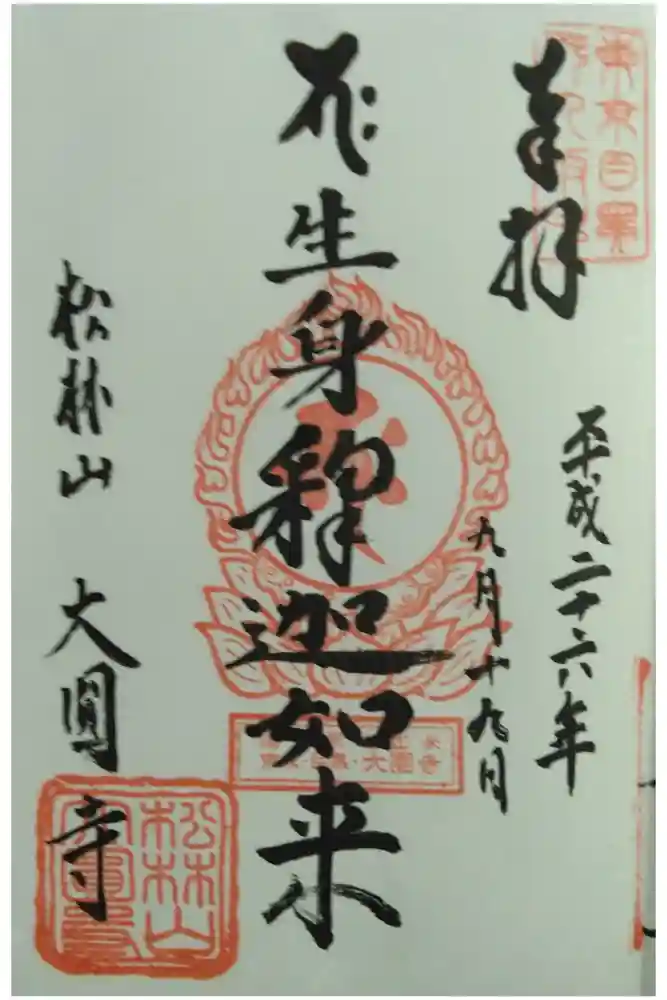 奉拝
平成二十六年
九月十九日
生身釋迦如来
松林山 大圓寺
東京目黒
大圓寺
松林山
大圓寺